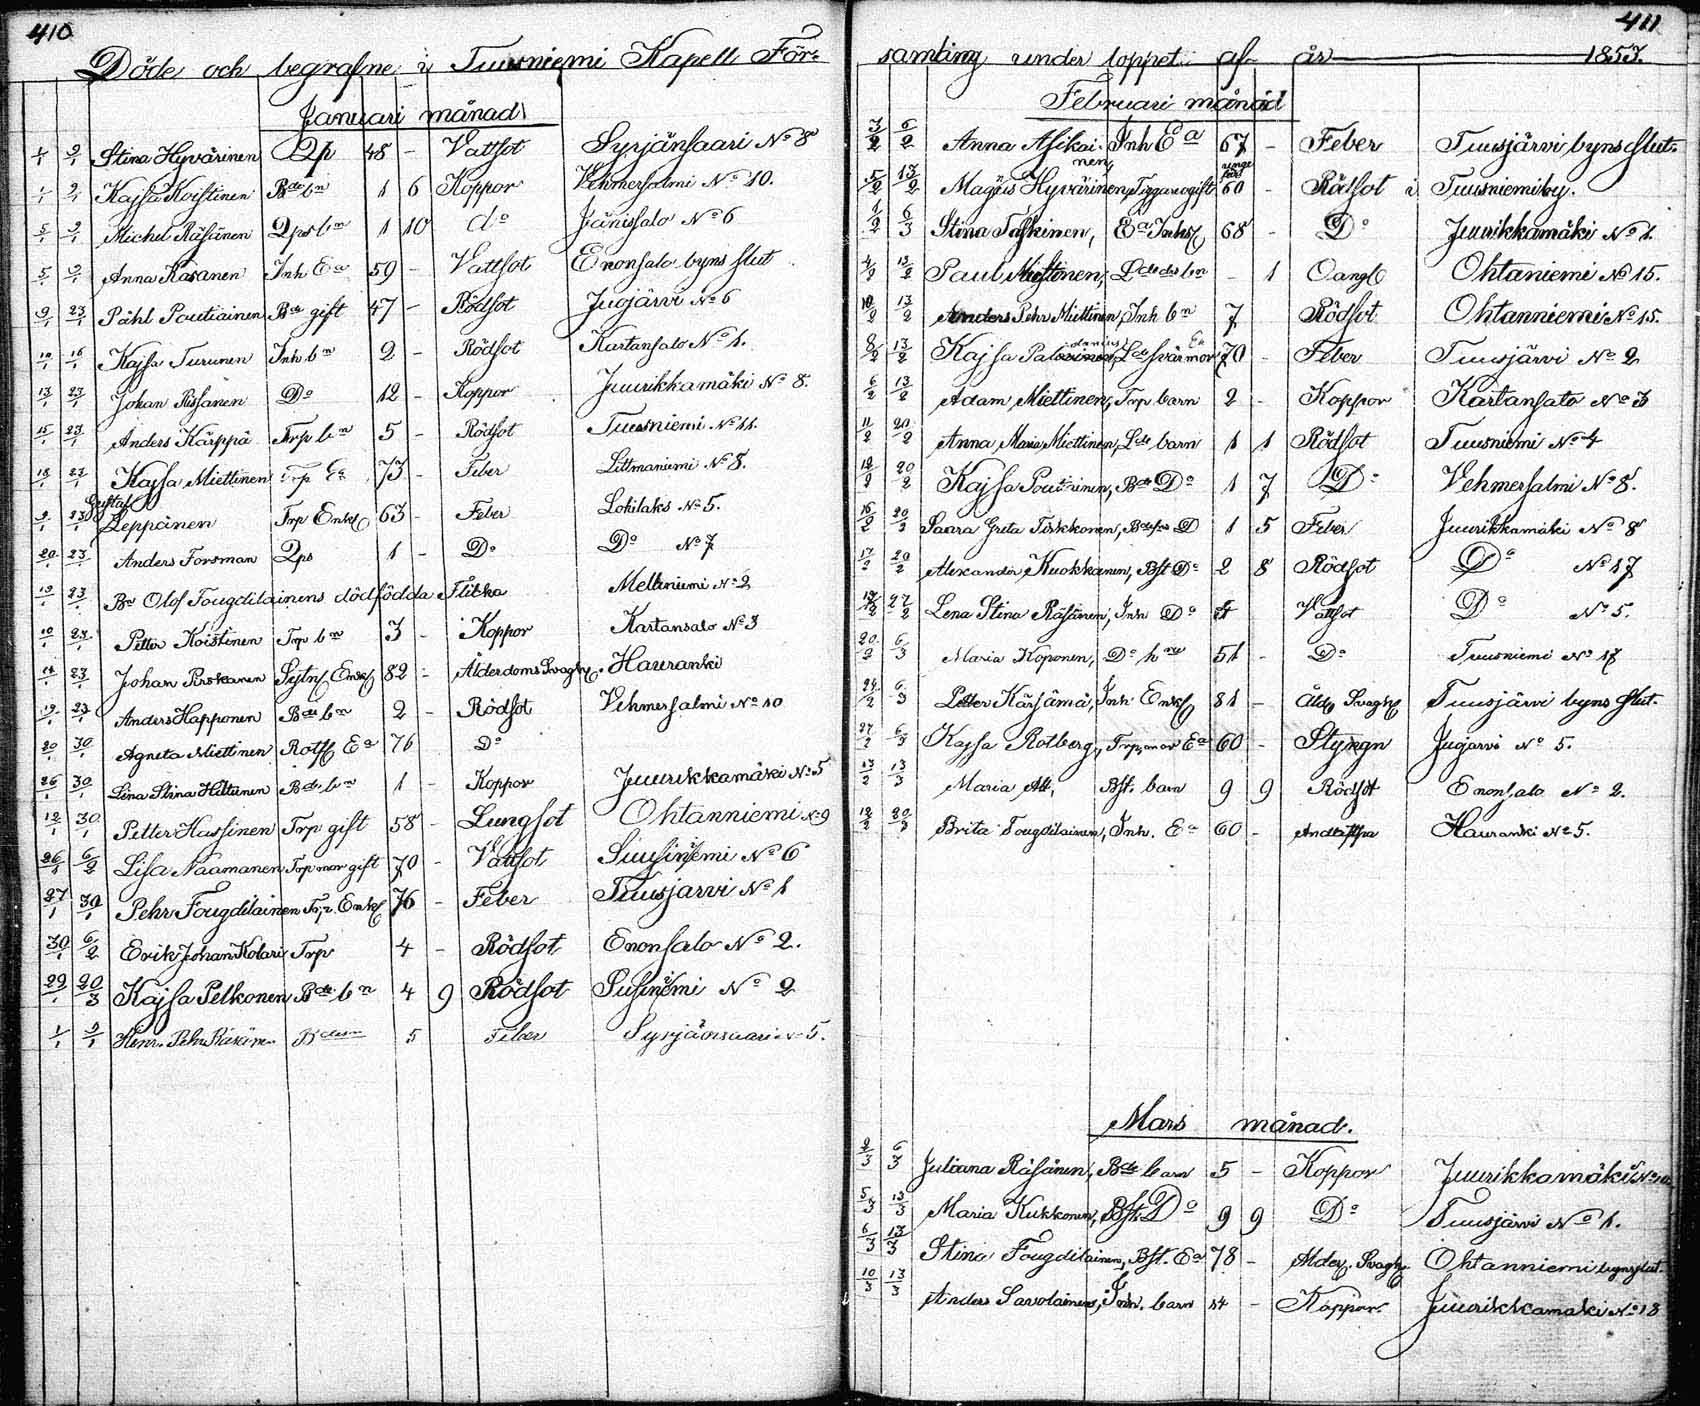 410
Döde och begrafne i Tuusniemi Kapell För-
Januari månad
1/1 2/1 Stina Hyvärinen Qp 48 - Vattsot Syrjänsaari No 8
1/1 2/1 Kajsa Koistinen Bde bn 1 6 Koppor Vehmersalmi No 10.
5/1 9/1 Michel Räsänen Qps bn 1 10 do Jänissalo No 6
5/1 9/1 Anna Kasanen Inh Ea 59 - Vattsot Enonsalo byns slut
9/1 23/1 Påhl Poutiainen Bde gift 47 - Rödsot Jugjärvi No 6
10/1 16/1 Kajsa Turunen Inh bn 2 - Rödsot Kartansalo No 1.
13/1 23/1 Johan Rissanen Do 12 - Koppor Juurikkamäki No 8.
15/1 23/1 Anders Kärppä Trp bn 5 - Rödsot Tuusniemi No 11.
18/1 23/1 Kajsa Miettinen Trp Ea 73 - Feber Littmaniemi No 8.
9/1 23/1 Gustaf Leppänen Trp Enkl 63 - Feber Lohilaks No 5.
20/1 23/1 Anders Forsman Qps 1 - Do Do No 7
19/1 23/1 Be Olof Fougdilainens dödfödda Flicka Melttiniemi No 2
10/1 23/1 Petter Koistinen Trp bn 3 - Koppor Kartansalo No 3
14/1 23/1 Johan Puskanen Sytn Enkl 82 - Ålderdoms Svaghet Hauranki
19/1 23/1 Anders Happonen Bde bn 2 - Rödsot Vehmersalmi No 10
20/1 30/1 Agneta Miettinen Rotfl Ea 76 - Do
26/1 30/1 Lena Stina Hiltunen Bde bn 1 - Koppor Juurikkamäki No 5
12/1 30/1 Petter Hassinen Trp gift 58 - Lungsot Ohtanniemi No 9
26/1 6/2 Lisa Naamanen Trp mor gift 70 - Vattsot Susiniemi No 6
27/1 30/1 Pehr Fougdilainen Trp. Enkl 76 - Feber Tuusjarvi No 1
30/1 6/2 Erik Johan Kolari Trp 4 - Rödsot Enonsalo No 2.
29/1 20/3 Kajsa Pelkonen Bde bn 4 9 Rödsot Susiniemi No 2
1/1 9/1 Henr. Pehr Räsänen 5 Feber Syrjänsaari No 5.
411
samling under loppet af år 1853.
Februari månad
3/2 6/2 Anna Asikainen, Inh Ea 67 - Feber Tuusjärvi byns slut.
5/2 13/2 Magnus Hyvärinen, Tiggare ogift unge för 60 - Rödsot i Tuusniemi by.
1/2 6/3 Stina Taskinen, Ea Inhs 68 - Do Juurikkamäki No 1.
4/2 13/2 Paul Miettinen, Ldedes bn - 1 Oangf Ohtaniemi No 15.
10/2 13/2 Anders Pehr Miettinen, Inh bn 7 Rödsot Ohtanniemi No 15.
8/2 13/2 Kajsa Lde svärmor Ea 70 - Feber Tuusjärvi No 2
6/2 13/2 Adam Miettinen, Trp barn 2 - Koppor Kartansalo No 3
11/2 20/2 Anna Maria Miettinen, Lde barn 1 1 Rödsot Tuusniemi No 4
12/2 20/2 Kajsa Poutiainen, Bde Do 1 7 Do Vehmersalmi No 8.
16/2 20/2 Saara Greta Tirkkonen, Bdes D 1 5 Feber Juurikkamäki No 8
17/2 20/2 Alexander Kuokkanen, Bst Do 2 8 Rödsot Do No 17
19/2 27/2 Lena Stina Räsänen, Inh Do 4 Vattsot Do No 5.
20/2 6/3 Maria Koponen, Do 51 - Do Tuusniemi No 17
24/2 6/3 Petter Kärhämä, Inh Enkl 81 - Åldr Svaght Tuusjärvi byns slut.
27/2 6/3 Kajsa Rotberg, Trp mor Ea 60 - Styngn Jugjarvi No 5.
13/2 13/3 Maria Att, Bst. barn 9 9 Rödsot Enonsalo No 2.
12/2 20/3 Brita Fougdilainen, Inh. Ea 60 - Andtäppa Hauranki No 5.
Mars månad.
2/3 6/3 Juliana Räsänen, Bde barn 5 - Koppor Juurikkamäki
5/3 13/3 Maria Kukkonen, Bst. Do 9 9 Do Tuusjärvi No 1.
6/3 13/3 Stina Fougdilainen, Bst. Ea 78 - Alder. Svaght Ohtanniemi byns slut.
10/3 13/3 Anders Savolainen, Inh. barn 14 - Koppor Juurikkamaki No 18